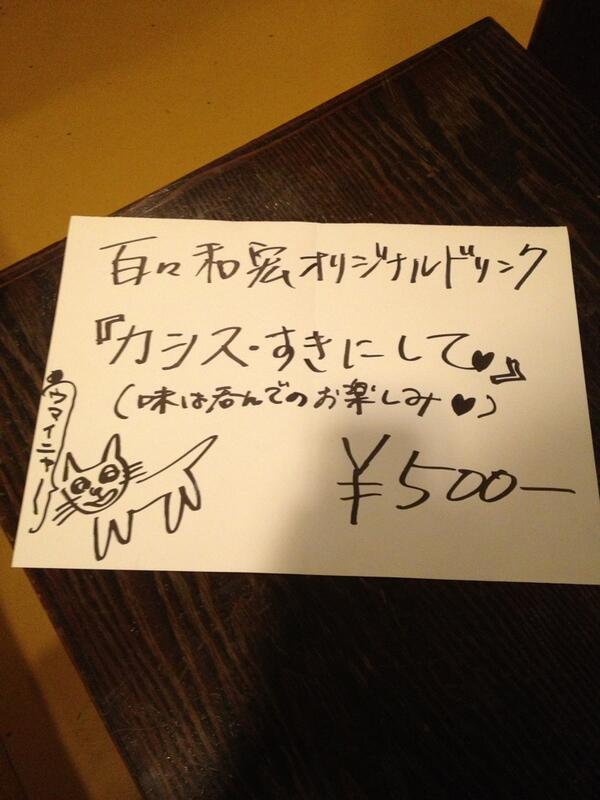 百々和宏オリジナルドリンク
『カシス・すきにして♥』
(味は呑んでのお楽しみ♥)
ウマイニャ〜
¥500—